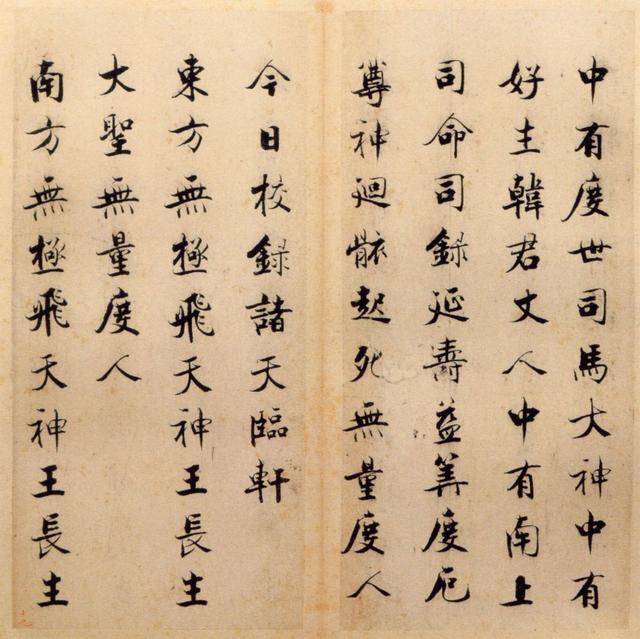 中有度世司馬大神中有
好主韓君丈人中有南上
司命司錄延壽益筭度厄
尊神迴骸起死無量度人
今日校錄諸天臨軒
東方無極飛天神王長生
大聖無量度人
南方無極飛天神王長生